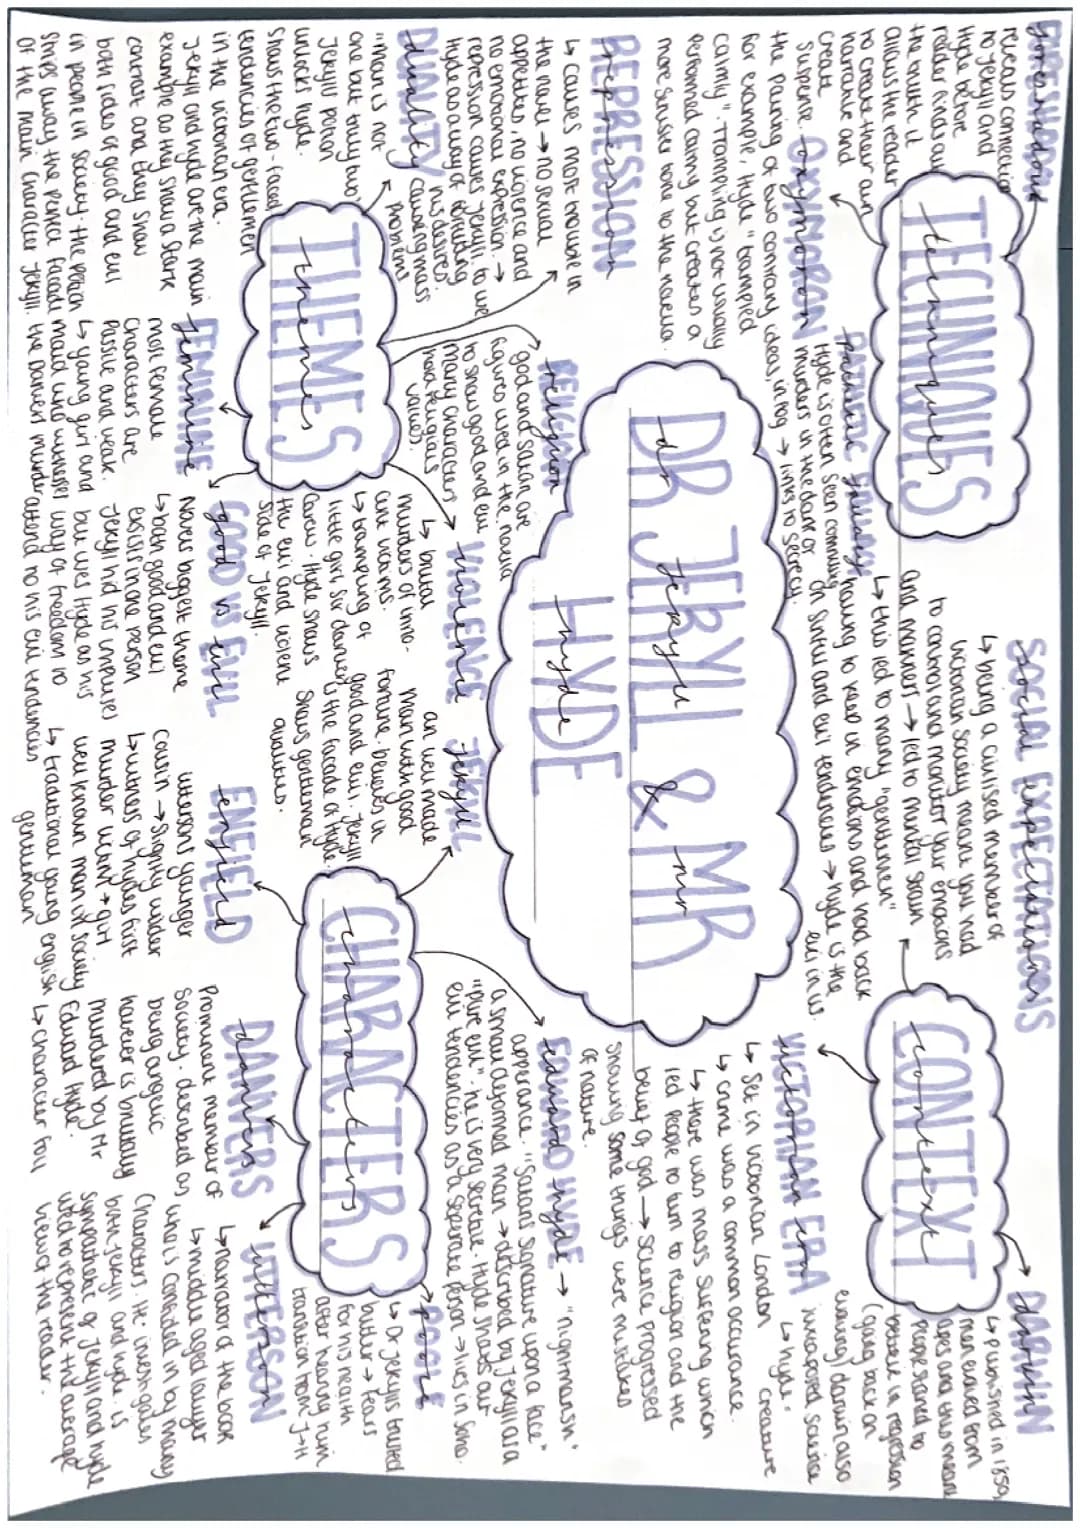 DR JEKYLL & MR
HYDE
dr jekyll & mr
hyde
TECHNIQUES
techniques
foreshadowing
reveals connection
to Jekyll and
Hyde before
reader finds out
the truth. it
allows the reader
to create their own
narrative and
create
suspense.
OXYMORON
oxymoron
the pairing of two contrary ideas,
for example, Hyde "trampled
calmly". Trampling is not usually
performed calmly but creates a
more sinister tone to the novella.
PATHETIC FALLACY
Hyde is often seen commiting
murders in the dark or
in fog → links to secrecy.
CONTEXT
context
SOCIAL EXPECTATIONS
social expectations
↳ being a civilised member of
victorian society meant you had
to control and monitor your emotions
and manners → led to mental strain
↳ this led to many "gentlemen"
having to keep in emotions and hold back
on sinful and evil tendencies → Hyde is the
evil in us.
VICTORIAN ERA
victorian era
↳ Set in victorian London
↳ crime was a common occurance.
↳ there was mass suffering which
led people to turn to religion and the
belief of god → science progressed
showing some things were mistakes
of nature.
DARWIN
darwin
↳ published in 1859,
men evolved from
apes and this meant
people started to
believe in regression
(going back on
evolving) darwin also
juxtaposed science
↳ "hyde" creature
THEMES
themes
REPRESSION
repression
↳ causes most trouble in
the novel → no sexual
appetites, no violence and
no emotional expression. →
repression causes Jekyll to use
Hyde as a way of
his desires
causing mass
problems
DUALITY
duality
"man is not
one but truly two"
Jekyll potion
unlocks Hyde.
Shows the two-faced
tendencies of gentlemen
in the victorian era.
Jekyll and Hyde are the main
example as they show a stark
contrast and they show
both sides of good and evil
in people in society. the potion
strips away the perfect facade
of the main character Jekyll.
RELIGION
religion
god and satan are
figures used in the novella
to show good and evil
many characters
hold religious
values.
FEMININE
feminine
most female
characters are
passive and weak.
↳ young girl and
maid who witnesses
the Danvers murder
VIOLENCE
violence
↳ brutal
murders of inno-
cent victims.
↳ trampling of
little girl, sir danvers
carew. Hyde shows
the evil and violent
side of Jekyll.
GOOD VS EVIL
good vs evil
Novels biggest theme
↳ both good and evil
exists in one person
Jekyll hid his impurities
but uses Hyde as his
way of freedom to
attend to his evil tendencies
CHARACTERS
characters
JEKYLL
jekyll
an well made
man with good
fortune. believes in
good and evil. Jekyll
is the facade of Hyde.
Shows gentleman
qualities.
ENFIELD
enfield
uttersons younger
cousin → slightly wilder
↳ witness of hydes first
murder victim → girl
well known man of society
↳ traditional young english
gentleman
EDWARD HYDE
edward hyde → "nightmarish"
apperance. "Satans signature upon a face"
a small deformed man → described by Jekyll as a
"pure evil". he is very secretive. Hyde shows our
evil tendencies as a seperate person → lives in Soho.
DANVERS
danvers
Prominent member of
society. described as
being angelic
however is brutally
murdered by Mr
Edward Hyde.
↳ character foil
UTTERSON
utterson
↳ narrator of the book
↳ middle aged lawyer
who is confided in by many
characters. He investigates
both Jekyll and Hyde. is
sympathetic of Jekyll and Hyde
used to represent the average
view of the reader.
POOLE
poole
↳ Dr Jekylls trusted
butler → fears
for his health
after hearing him
transition from J→H